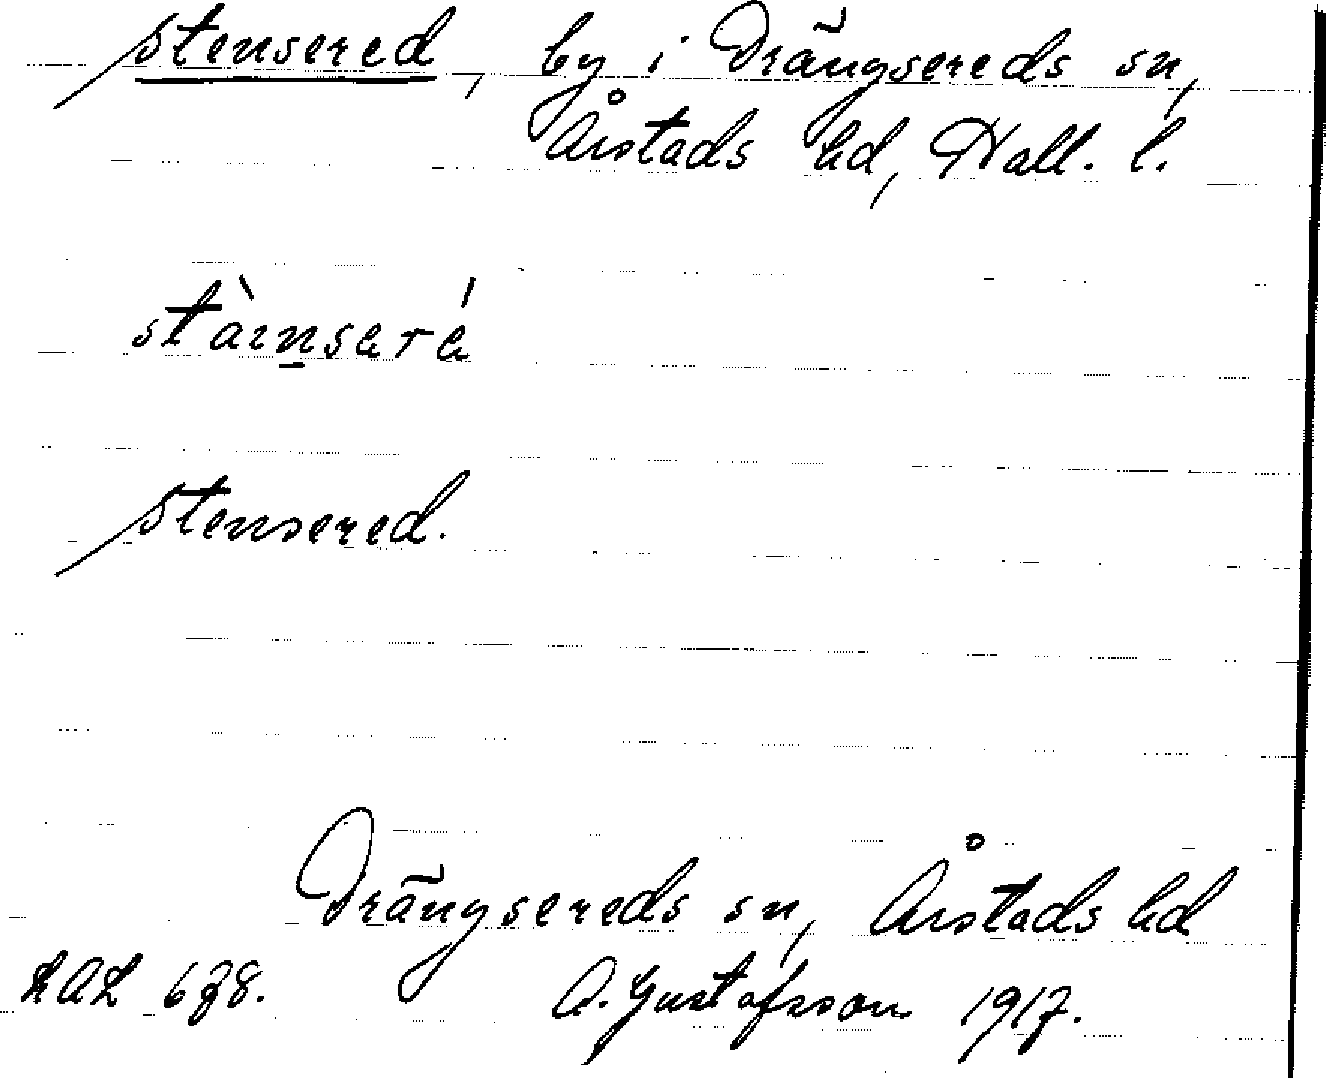 Stensered, by i Drängsereds sn,
Årstads hd, Hall. l.
Stensered.
Drängsereds sn, Årstads hd
LAL 678. A. Gustafsson 1917.